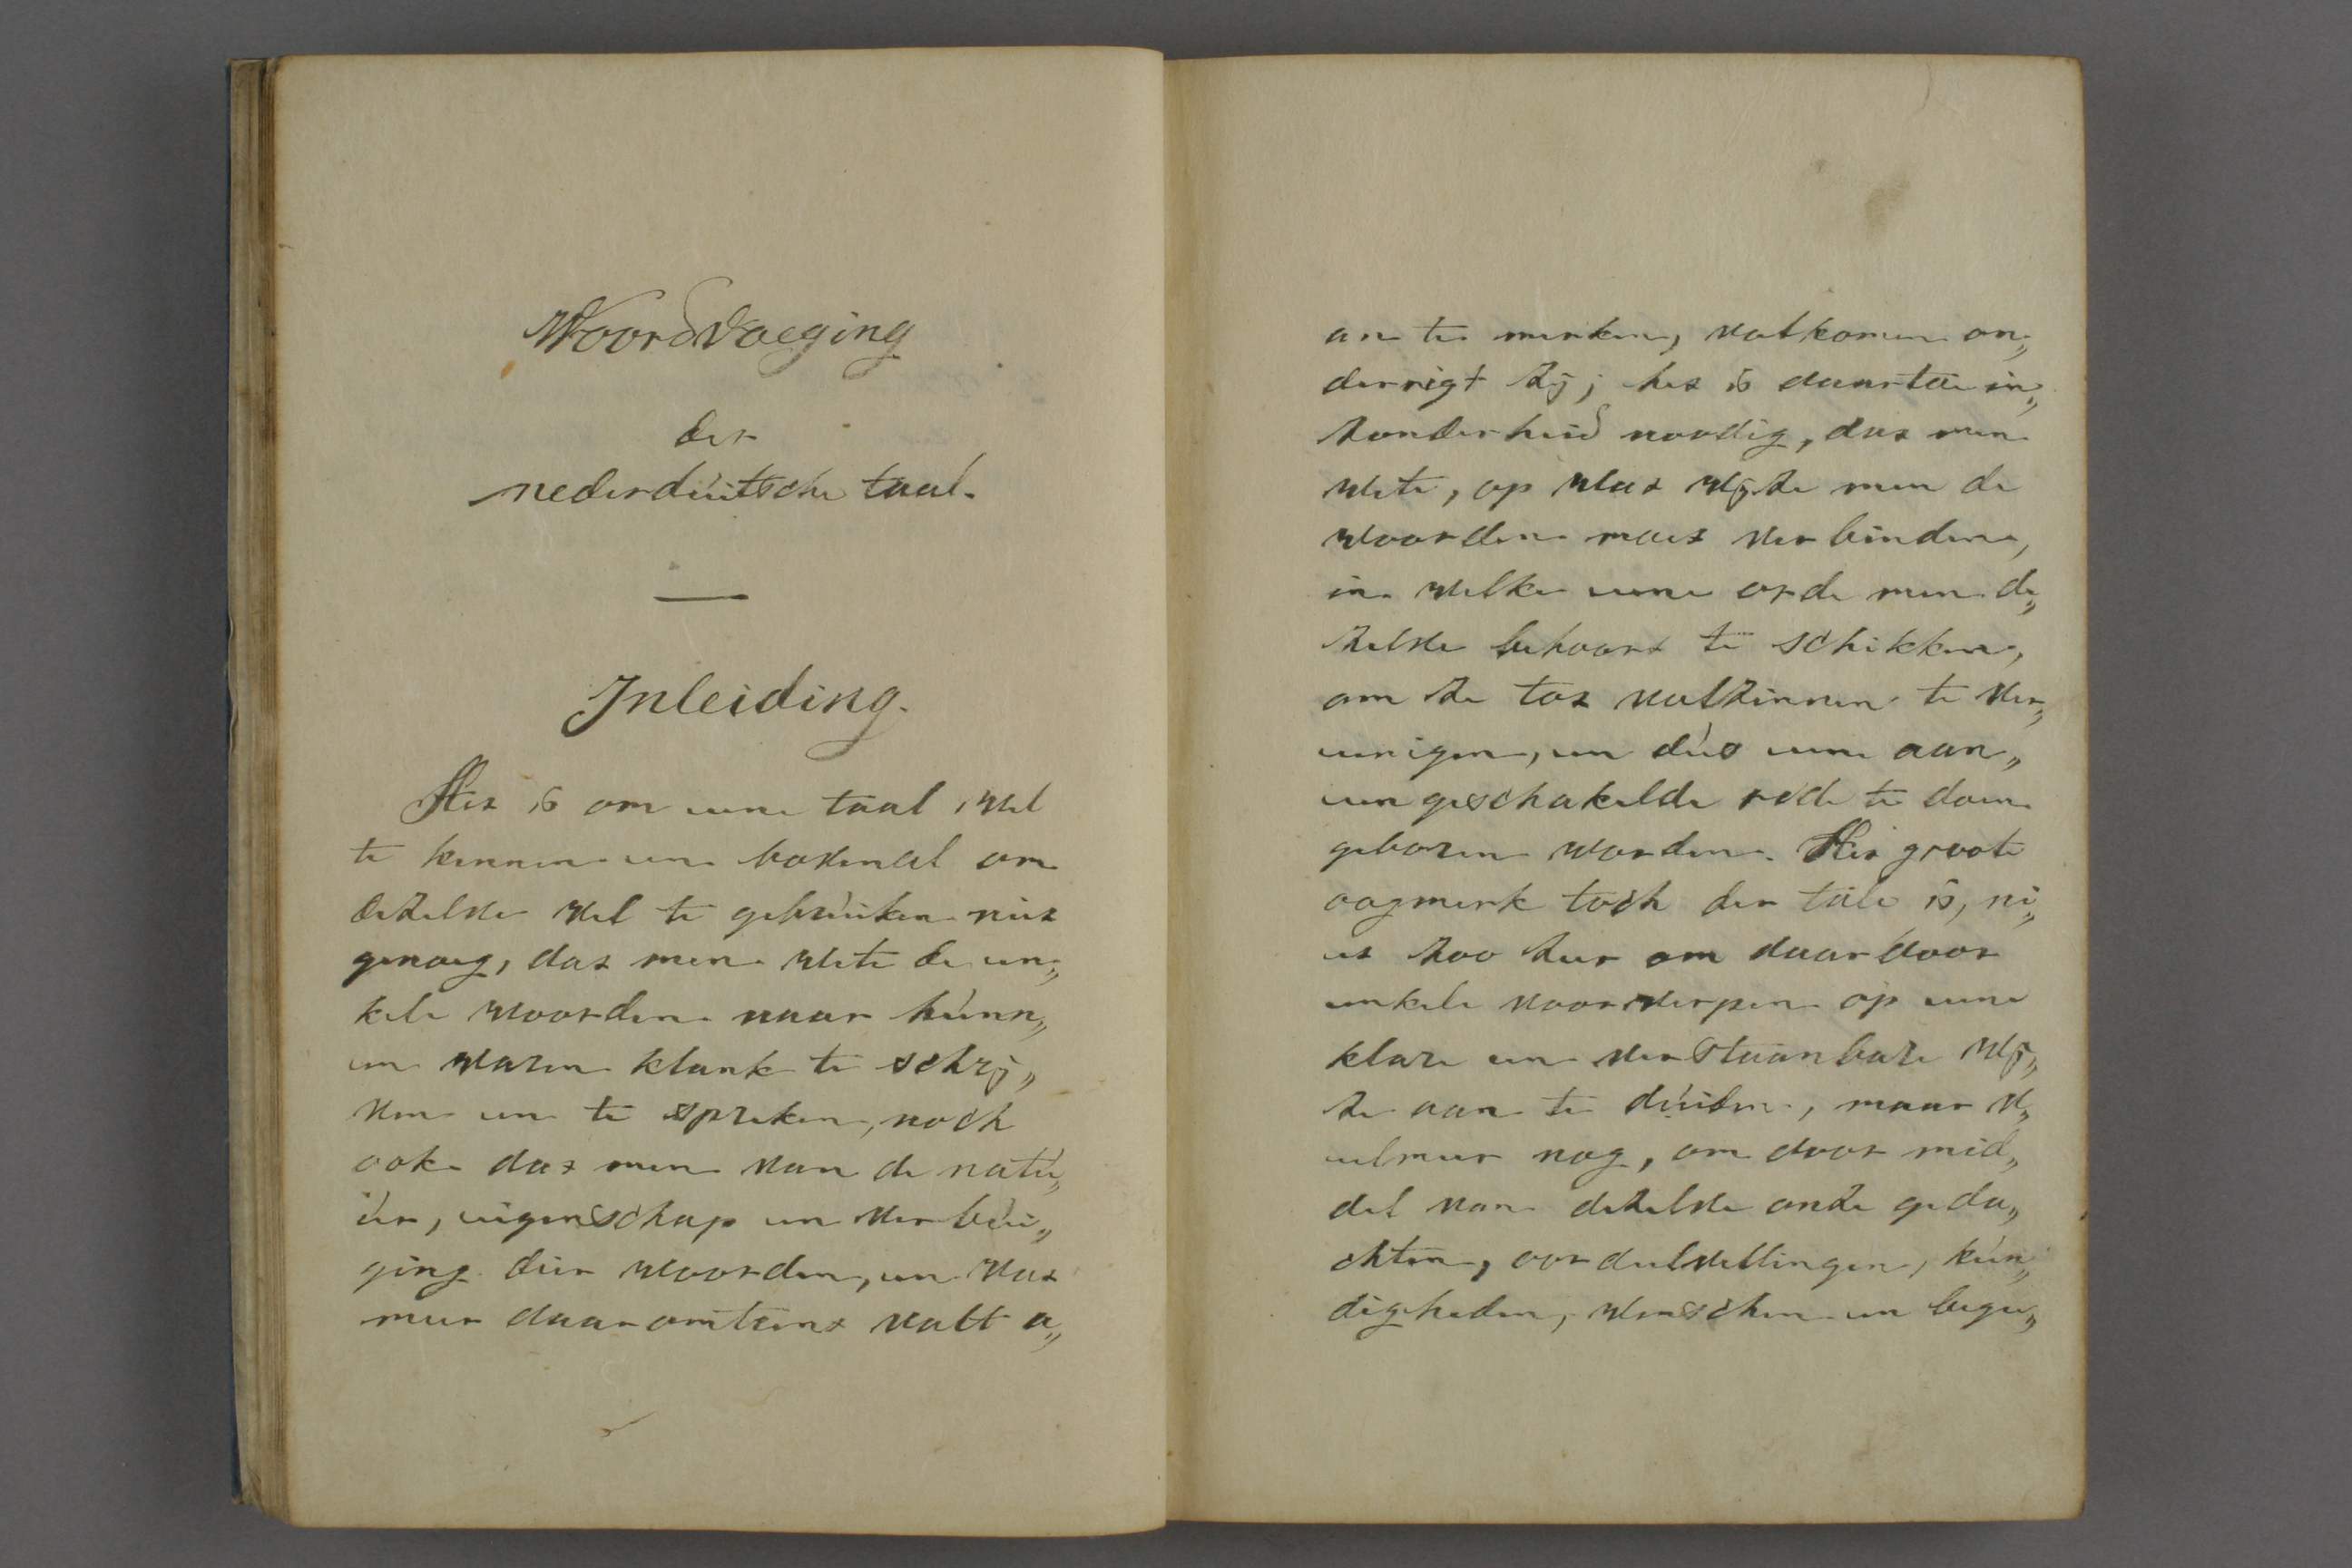 Woordvoeging
der
nederduitsche taal.
Inleiding.
Het is om eene taal wel
te kennen en bovenal om
dezelve wel te gebruiken niet
genoeg, dat men wete de en„
kele woorden naar hunn„
en waren klank te schrij„
ven en te spreken, noch
ook dat men van de natu„
ur, eigenschap en verbui„
ging dier woorden, en wat
meer daaromtrent valt a„
an te merken, volkomen on„
derrigt zij; het is daartoe in„
zonderheid noodig, dat men
wete, op wat wijze men de
woorden moet verbinden,
in welke eene orde men de„
zelve behoort te schikken,
om ze tot volzinnen te ver„
eenigen, en dus eene aan„
eengeschakelde rede te doen
geboren worden. Het groote
oogmerk toch der tale is, ni„
et zoo zeer om daardoor
enkele voorwerpen op eene
klare en verstaanbare wij„
ze aan te duiden, maar v„
eelmeer nog, om door mid„
del van dezelve onze geda„
chten, oordeelvellingen, kun„
digheden, wenschen en bege„